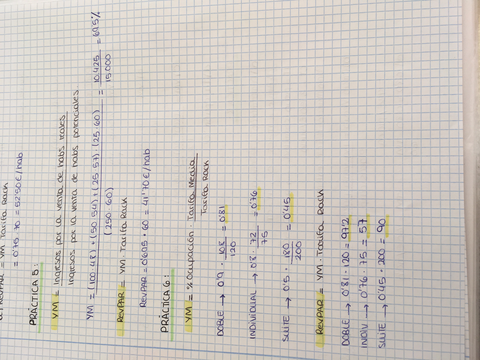 REVPAR = YM · Tarifa Rack
= 0'75 · 70 = 52'50 €/hab
PRÁCTICA 5:
YM = Ingresos por la venta de habs reales
Ingresos por la venta de habs potenciales
YM = (100·48) + (50·54) (25·57) (25·60) = 10.425 = 69'5%
(250·60) 15.000
REVPAR = YM · Tarifa Rack
REVPAR = 0'695 · 60 = 41'70 €/hab
PRÁCTICA 6:
YM = % Ocupación · Tarifa Media
Tarifa Rack
DOBLE → 0'9 · 108 = 0'81
120
INDIVIDUAL → 0'8 · 72 = 0'76
75
SUITE → 0'5 · 180 = 0'45
200
REVPAR = YM · Tarifa Rack
DOBLE → 0'81 · 120 = 97'2
INDIV → 0'76 · 75 = 57
SUITE → 0'45 · 200 = 90